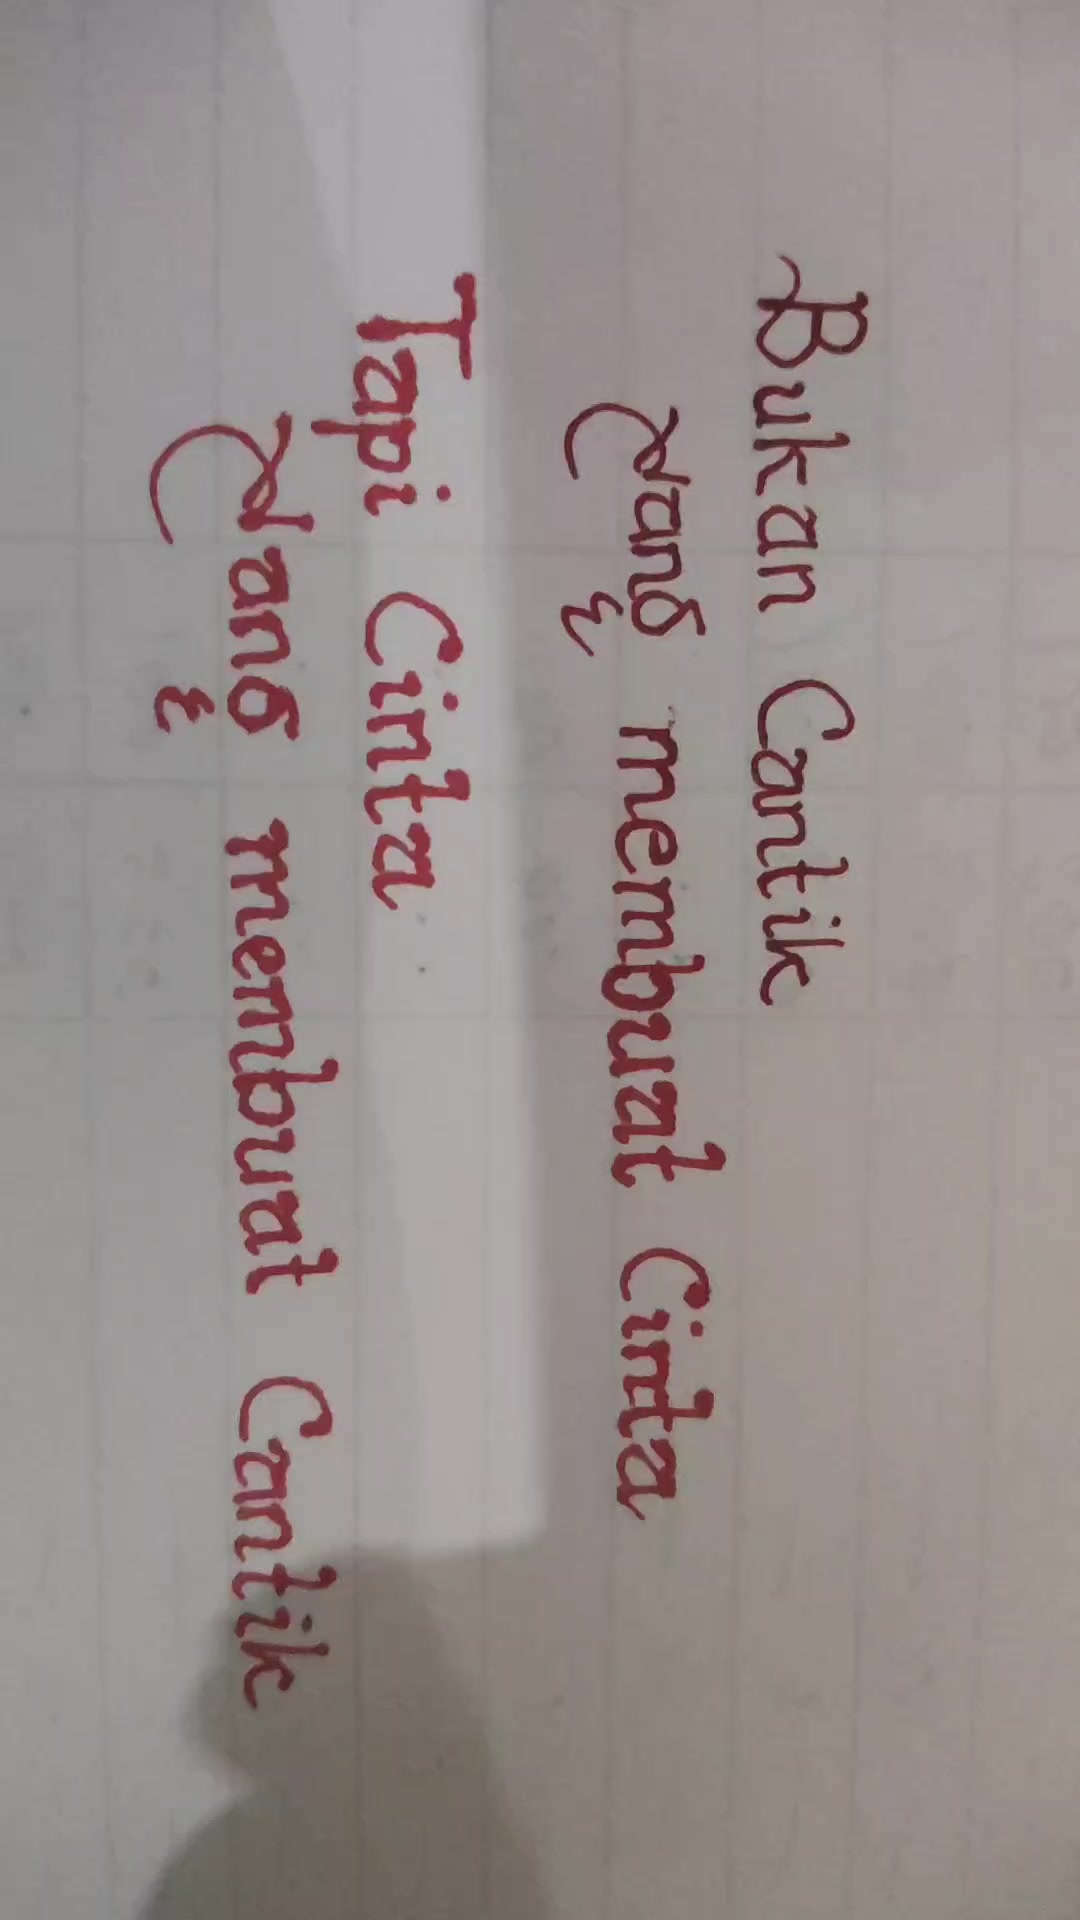 Bukan Cantik
Yang membuat Cinta
Tapi Cinta
Yang membuat Cantik